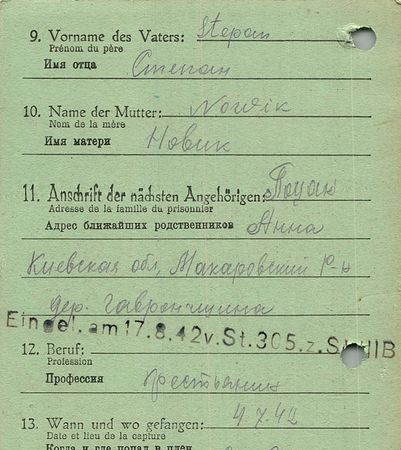 9. Vorname des Vaters: Stepan
Prénom du père
Имя отца Степан
10. Name der Mutter: Nowik
Nom de la mère
Имя матери Новик
11. Anschrift der nächsten Angehörigen:
Adresse de la famille du prisonnier
Адрес ближайших родственников Анна
Киевская обл, Макаровский р-н
дер. Гавронщина
Eingel. am 17.8.42 v. St. 305. z. St. IIB
12. Beruf:
Profession
Профессия крестьянин
13. Wann und wo gefangen: 4.7.42
Date et lieu de la capture
Когда и где попал в плен